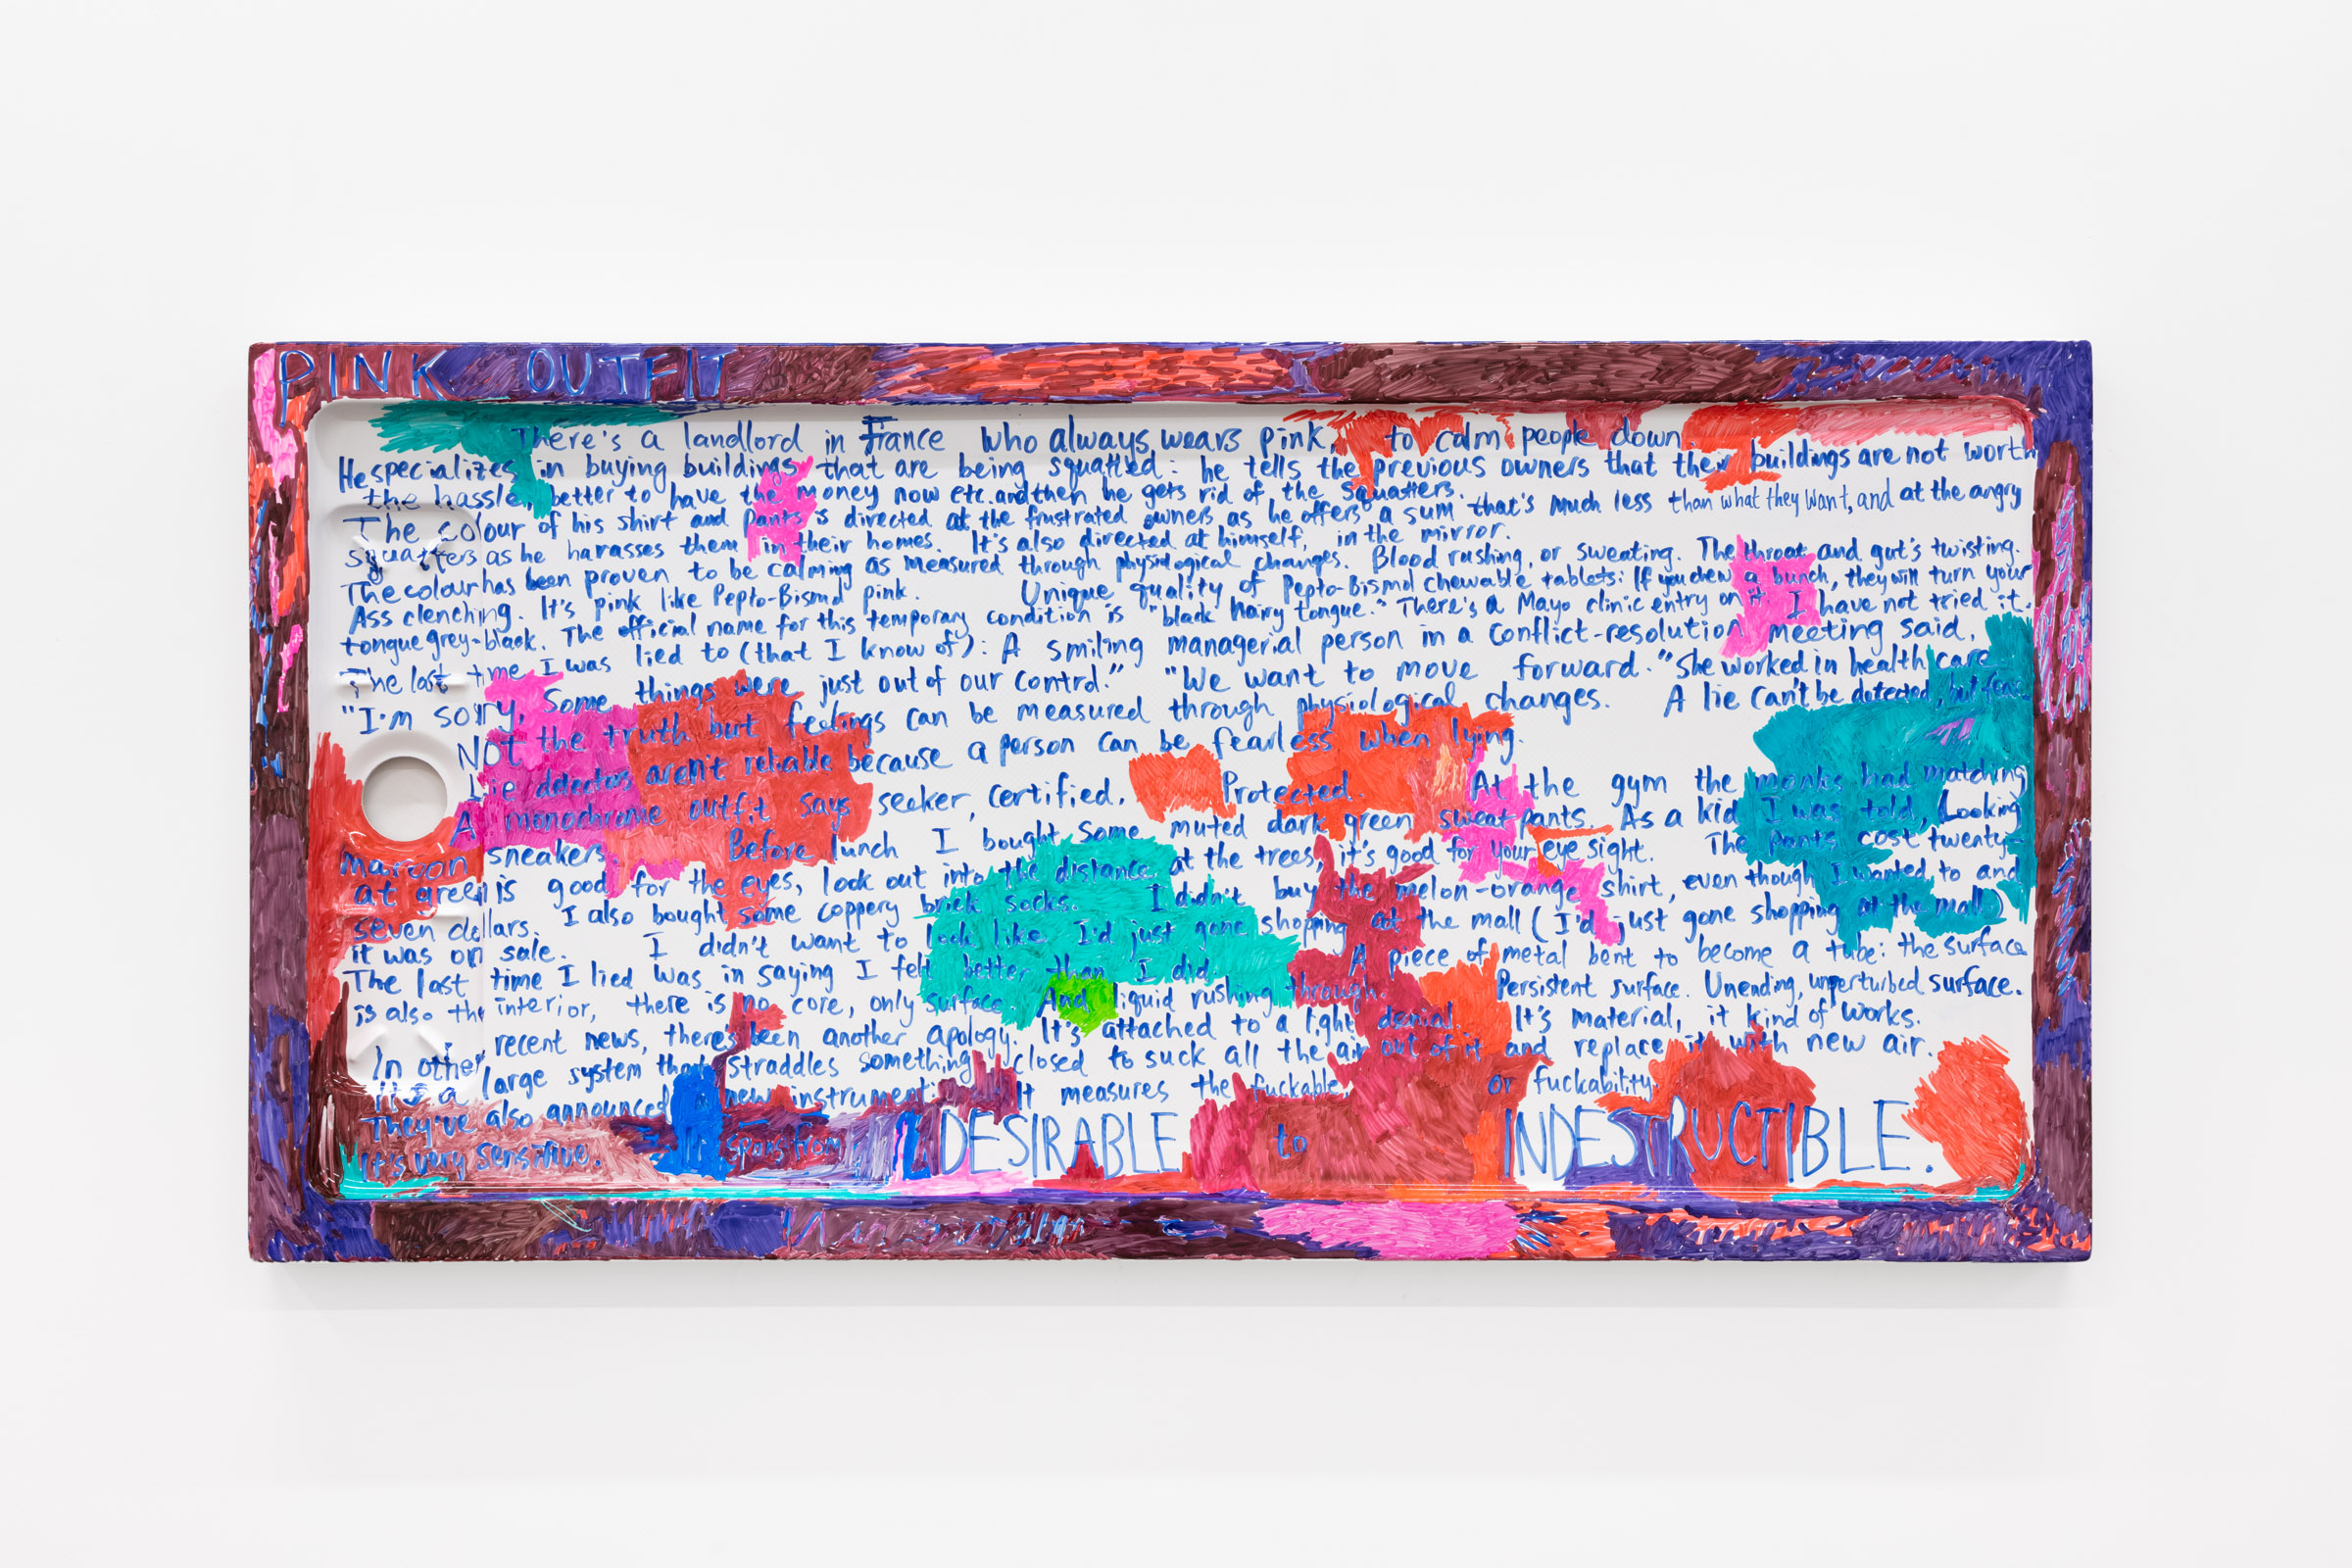 PINK OUTFIT
There's a landlord in France who always wears pink, to calm people down.
He specializes in buying buildings that are being squatted: he tells the previous owners that their buildings are not worth
the hassle, better to have the money now etc. and then he gets rid of the squatters.
The colour of his shirt and pants is directed at the frustrated owners as he offers a sum that's much less than what they want, and at the angry
squatters as he harasses them in their homes. It's also directed at himself, in the mirror.
The colour has been proven to be calming as measured through physiological changes. Blood rushing, or sweating. The throat and gut's twisting.
Ass clenching. It's pink like Pepto-Bismol pink. Unique quality of Pepto-Bismol chewable tablets: If you chew a bunch, they will turn your
tongue grey-black. The official name for this temporary condition is "black hairy tongue." There's a Mayo clinic entry on it. I have not tried it.
The last time I was lied to (that I know of): A smiling managerial person in a conflict-resolution meeting said,
"I'm sorry, Some things were just out of our control." "We want to move forward." She worked in health care.
Not the truth but feelings can be measured through physiological changes. A lie can't be detected, but fear.
Lie detectors aren't reliable because a person can be fearless when lying.
A monochrome outfit says seeker, certified. Protected. At the gym the monks had matching
maroon sneakers. Before lunch I bought some muted dark green sweatpants. As a kid I was told, Looking
at green is good for the eyes, look out into the distance at the trees, it's good for your eye sight. The pants cost twenty-
seven dollars. I also bought some coppery brick socks. I didn't buy the melon-orange shirt, even though I wanted to and
it was on sale. I didn't want to look like I'd just gone shopping at the mall (I'd just gone shopping at the mall)
The last time I lied was in saying I felt better than I did. A piece of metal bent to become a tube: the surface
is also the interior, there is no core, only surface. And liquid rushing through. Persistent surface. Unending, unperturbed surface.
In other recent news, there's been another apology. It's attached to a light denial. It's material, it kind of works.
It's a large system that straddles something closed to suck all the air out of it and replace it with new air.
They've also announced a new instrument: It measures the fuckable or fuckability.
It's very sensitive. It spans from DESIRABLE to INDESTRUCTIBLE.